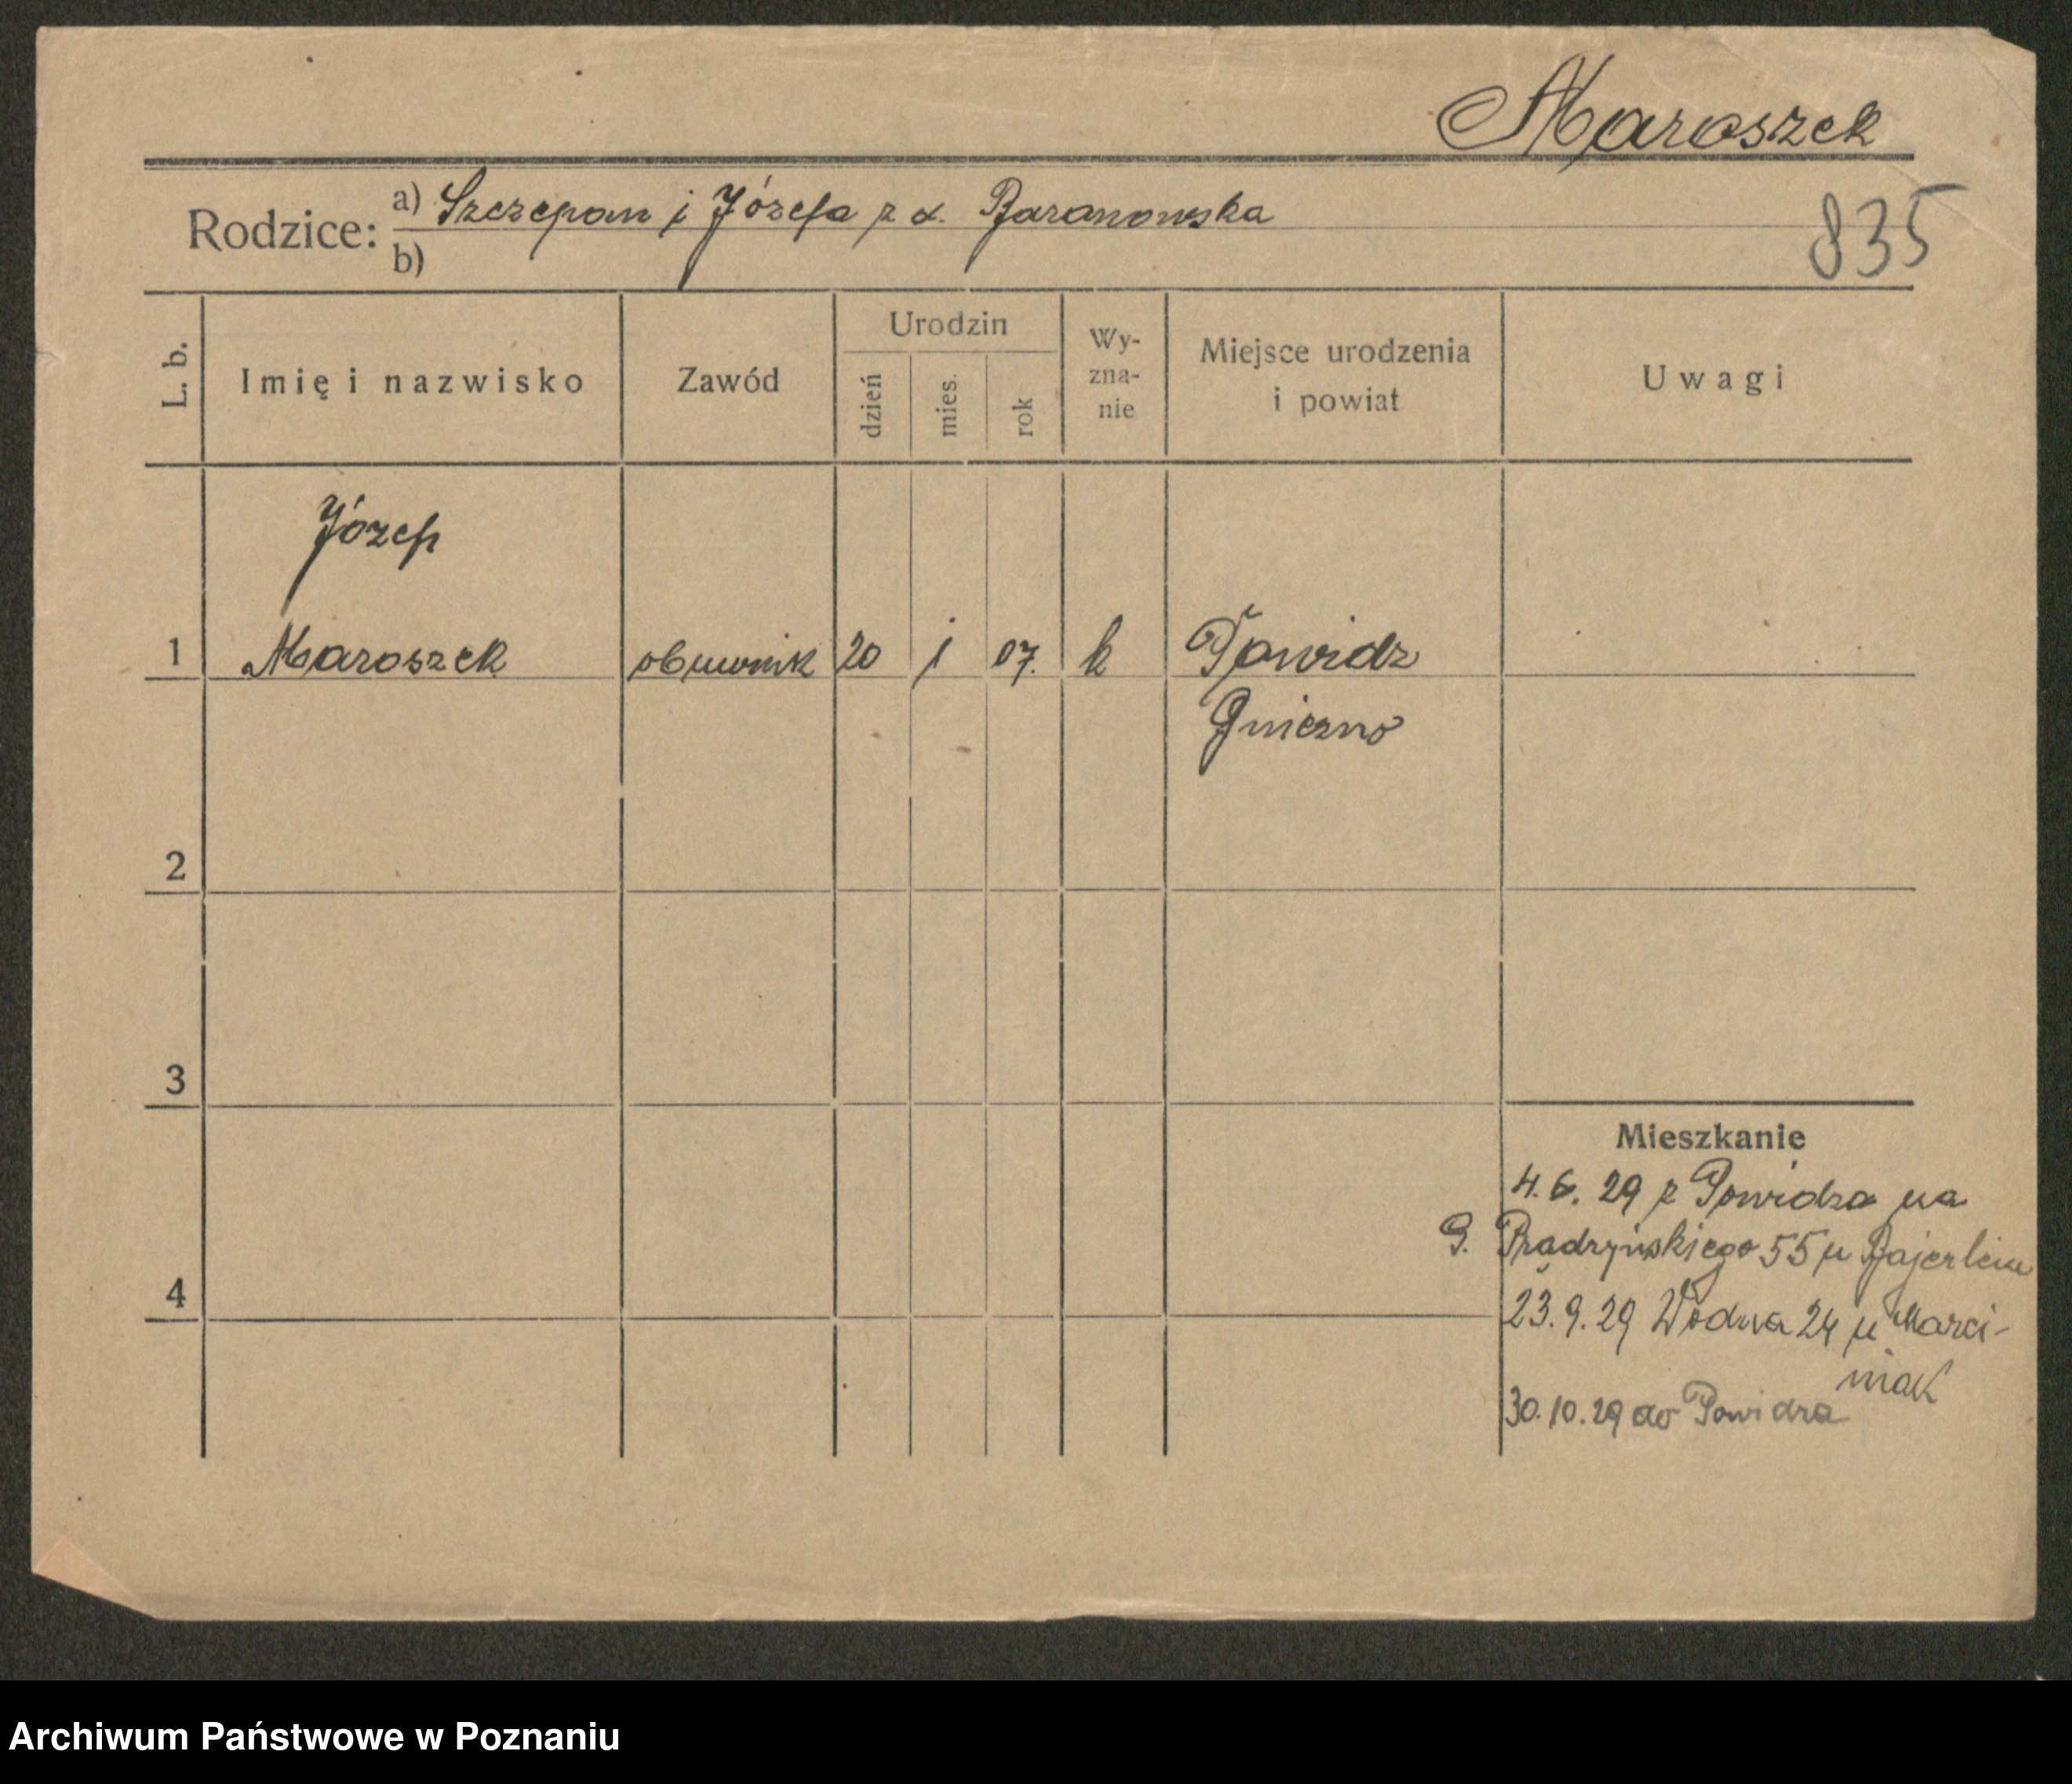 Maroszek
835
Rodzice: a) Szczepan i Józefa z d. Baranowska
b)
L. b. Imię i nazwisko Zawód Urodzin dzień mies. rok Wy- zna- nie Miejsce urodzenia i powiat Uwagi
Józef
1 Maroszek obuwnik 20 1 07. k Powidz
Gniezno
2
3
Mieszkanie
4. 6. 29 z Powidza na
G. Prądzyńskiego 55 u Bajerlein
4
23. 9. 29 Wodna 24 u Marci-
niak
30. 10. 29 do Powidza
Archiwum Państwowe w Poznaniu